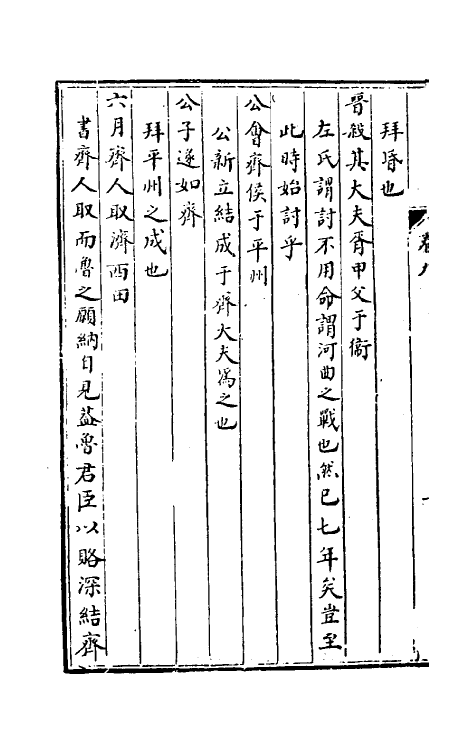 拜昏也
晉殺其大夫胥甲父于衞
左氏謂討不用命謂河曲之戰也然已七年矣豈至
此時始討乎
公會齊侯于平州
公新立結成于齊大夫爲之也
公子遂如齊
拜平州之成也
六月齊人取濟西田
書齊人取而魯之願納自見葢魯君臣以賂深結齊
卷九